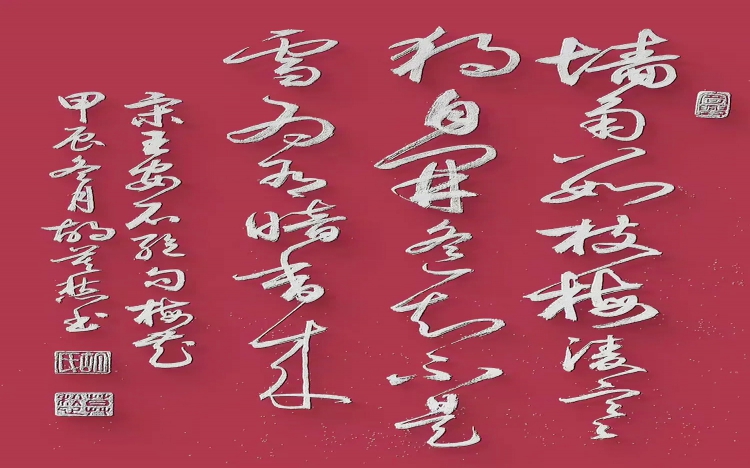 墙角数枝梅凌寒
独自開遥知不是
雪为有暗香来
宋王安石绝句梅花
甲辰冬月胡书